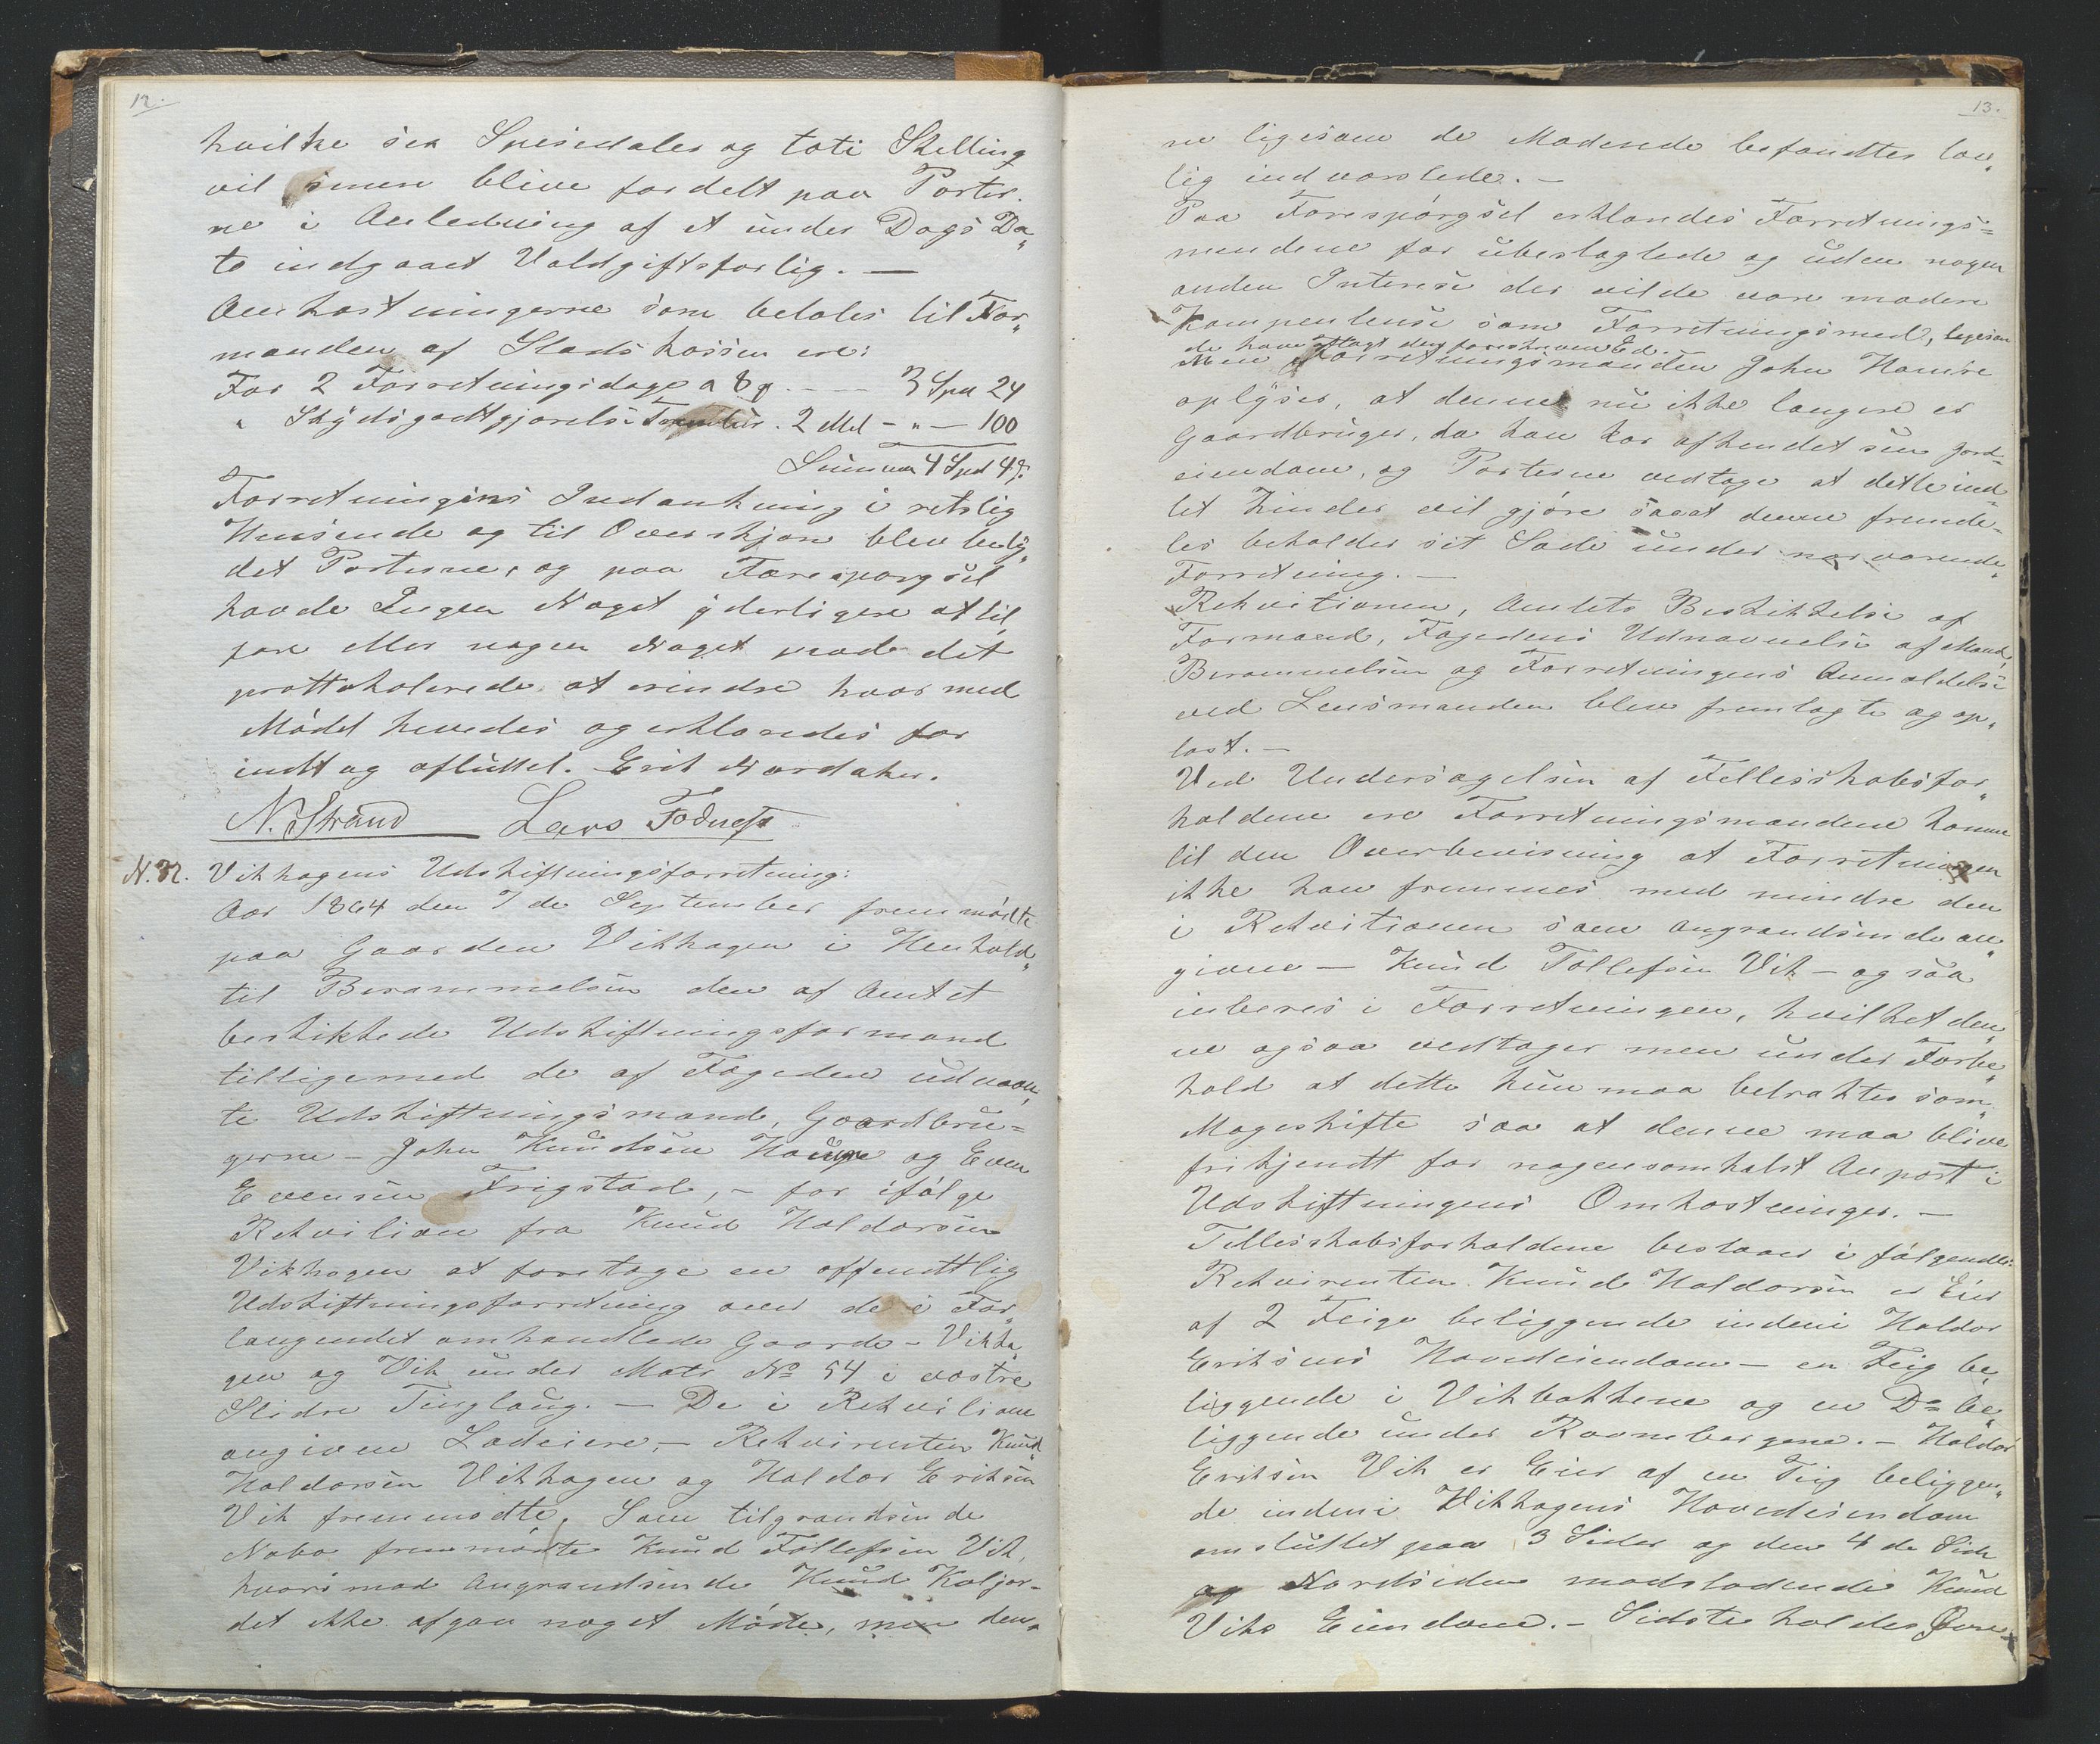 12.
hvilke sex Speciedaler og toti Skelling
vil … blive fordelt paa Parter-
ne i Anledning af et under Dags Da„
to indgaaet Voldgiftsforlig. —
Omkostningerne som betales til For„
manden af Stads kassen ere:
For 2 Forretningsdage a 8 … - - - 3 Spd 24
„ Skydsgodtgjørelse … 2 Mil - „ - 100
Summa 4 Spd 4 ẞ.
Forretningens Indankning i retslig
Henseende og til Overskjøn blev betÿ„
det Parterne, og paa Forespørgsel
havde Ingen Noget yderligere at til„
føre eller nogen Noget mod det
prottokolerede at erindre hvormed
Mødet hevedes og erklæredes for
endt og afsluttet. Erik Nordaker.
N. Strand Lars Fodnes
N. 32. Vikhagens Udskiftningsforretning:
Aar 1864 den 7de September fremmødte
paa Gaarden Vikhagen i Henhold„
til Berammelsen den af Amtet
beskikkede Udskiftningsformand
tilligemed de af Fogeden udnævn„
te Udskiftningsmænd, Gaardbru=
gerne - John Knudsen Hougre og Even
Evensen Frigstad, - for ifølge
Rekvisition fra Knud Haldorsen
Vikhagen at foretage en offentlig
Udskiftningsforretning over de i For„
langendet omhandlede Gaarde - Vikha„
gen og Vik under Matr No 54 i vestre
Slidre Tinglaug. - De i Rekvisitionen
angivne Lodeiere, - Rekvirenten Knud
Haldorsen Vikhagen og Haldor Eriksen
Vik fremmødte. Som tilgrændsende
Nabo fremmødte Knud Tollefsen Vik,
hvorimod Angrændsende Knud Kaljor-
det ikke afgav noget Møde, men den„
13.
ne ligesom de Mødende befandtes lov„
lig indvarslede. -
Paa Forespørgsel erklærdes Forretnings=
mændene for ubeslægtede og uden nogen
anden Interese der vilde være modere
Kompentense som Forretningsmænd, ligesom
de have aflagt den foreskrevne Ed.
Men Forretningsmanden John Hougre
oplyser, at denne nu ikke længere er
Gaardbruger, da han har afhendet sin Jord-
eiendom, og Parterne vedtage at dette ind-
tet Hinder vil gjøre saaat denne fremde-
les beholder sit Sæde under nærværende
Forretning. -
Rekvitionen, Amtets Beskikkelse af
Formænd, Fogedens Udnævnelse af Mænd,
Berammelsen og Forretningens Anmældelse
ved Lensmanden blev fremlagte og op„
læst. -
Ved Undersøgelsen af Fellesskabsfor„
holdene ere Forretningsmændene komne
til den Overbevisning at Forretningen
ikke kan fremmes med mindre den
i Rekvitionen som angrændsende an„
givne - Knud Tollefsen Vik - ogsaa
inberes i Forretningen, hvilket den„
ne ogsaa vedtager men under Forbe„
hold at dette kun maa betraktes som
Mageskifte saa at denne maa blive
frikjendt for nogensomhelst Anpart i
Udskiftningens Omkostninger. -
Fellesskabsforholdene bestaar i følgende:
Rekvirenten Knud Haldorsen er Eier
af 2 Teige beliggende indeni Haldor
Eriksens Hovedeiendom - en Teig be„
liggende i Vikbakkene og en Do be„
liggende under Ravnebergene. - Haldor
Eriksen Vik er Eier af en Teig beliggen„
de indeni Vikhagens Hovedeiendom
omsluttet paa 3 Sider og den 4de Side
og Nordsiden modstødende Knud
Viks Eiendom. - Sidste holdes …